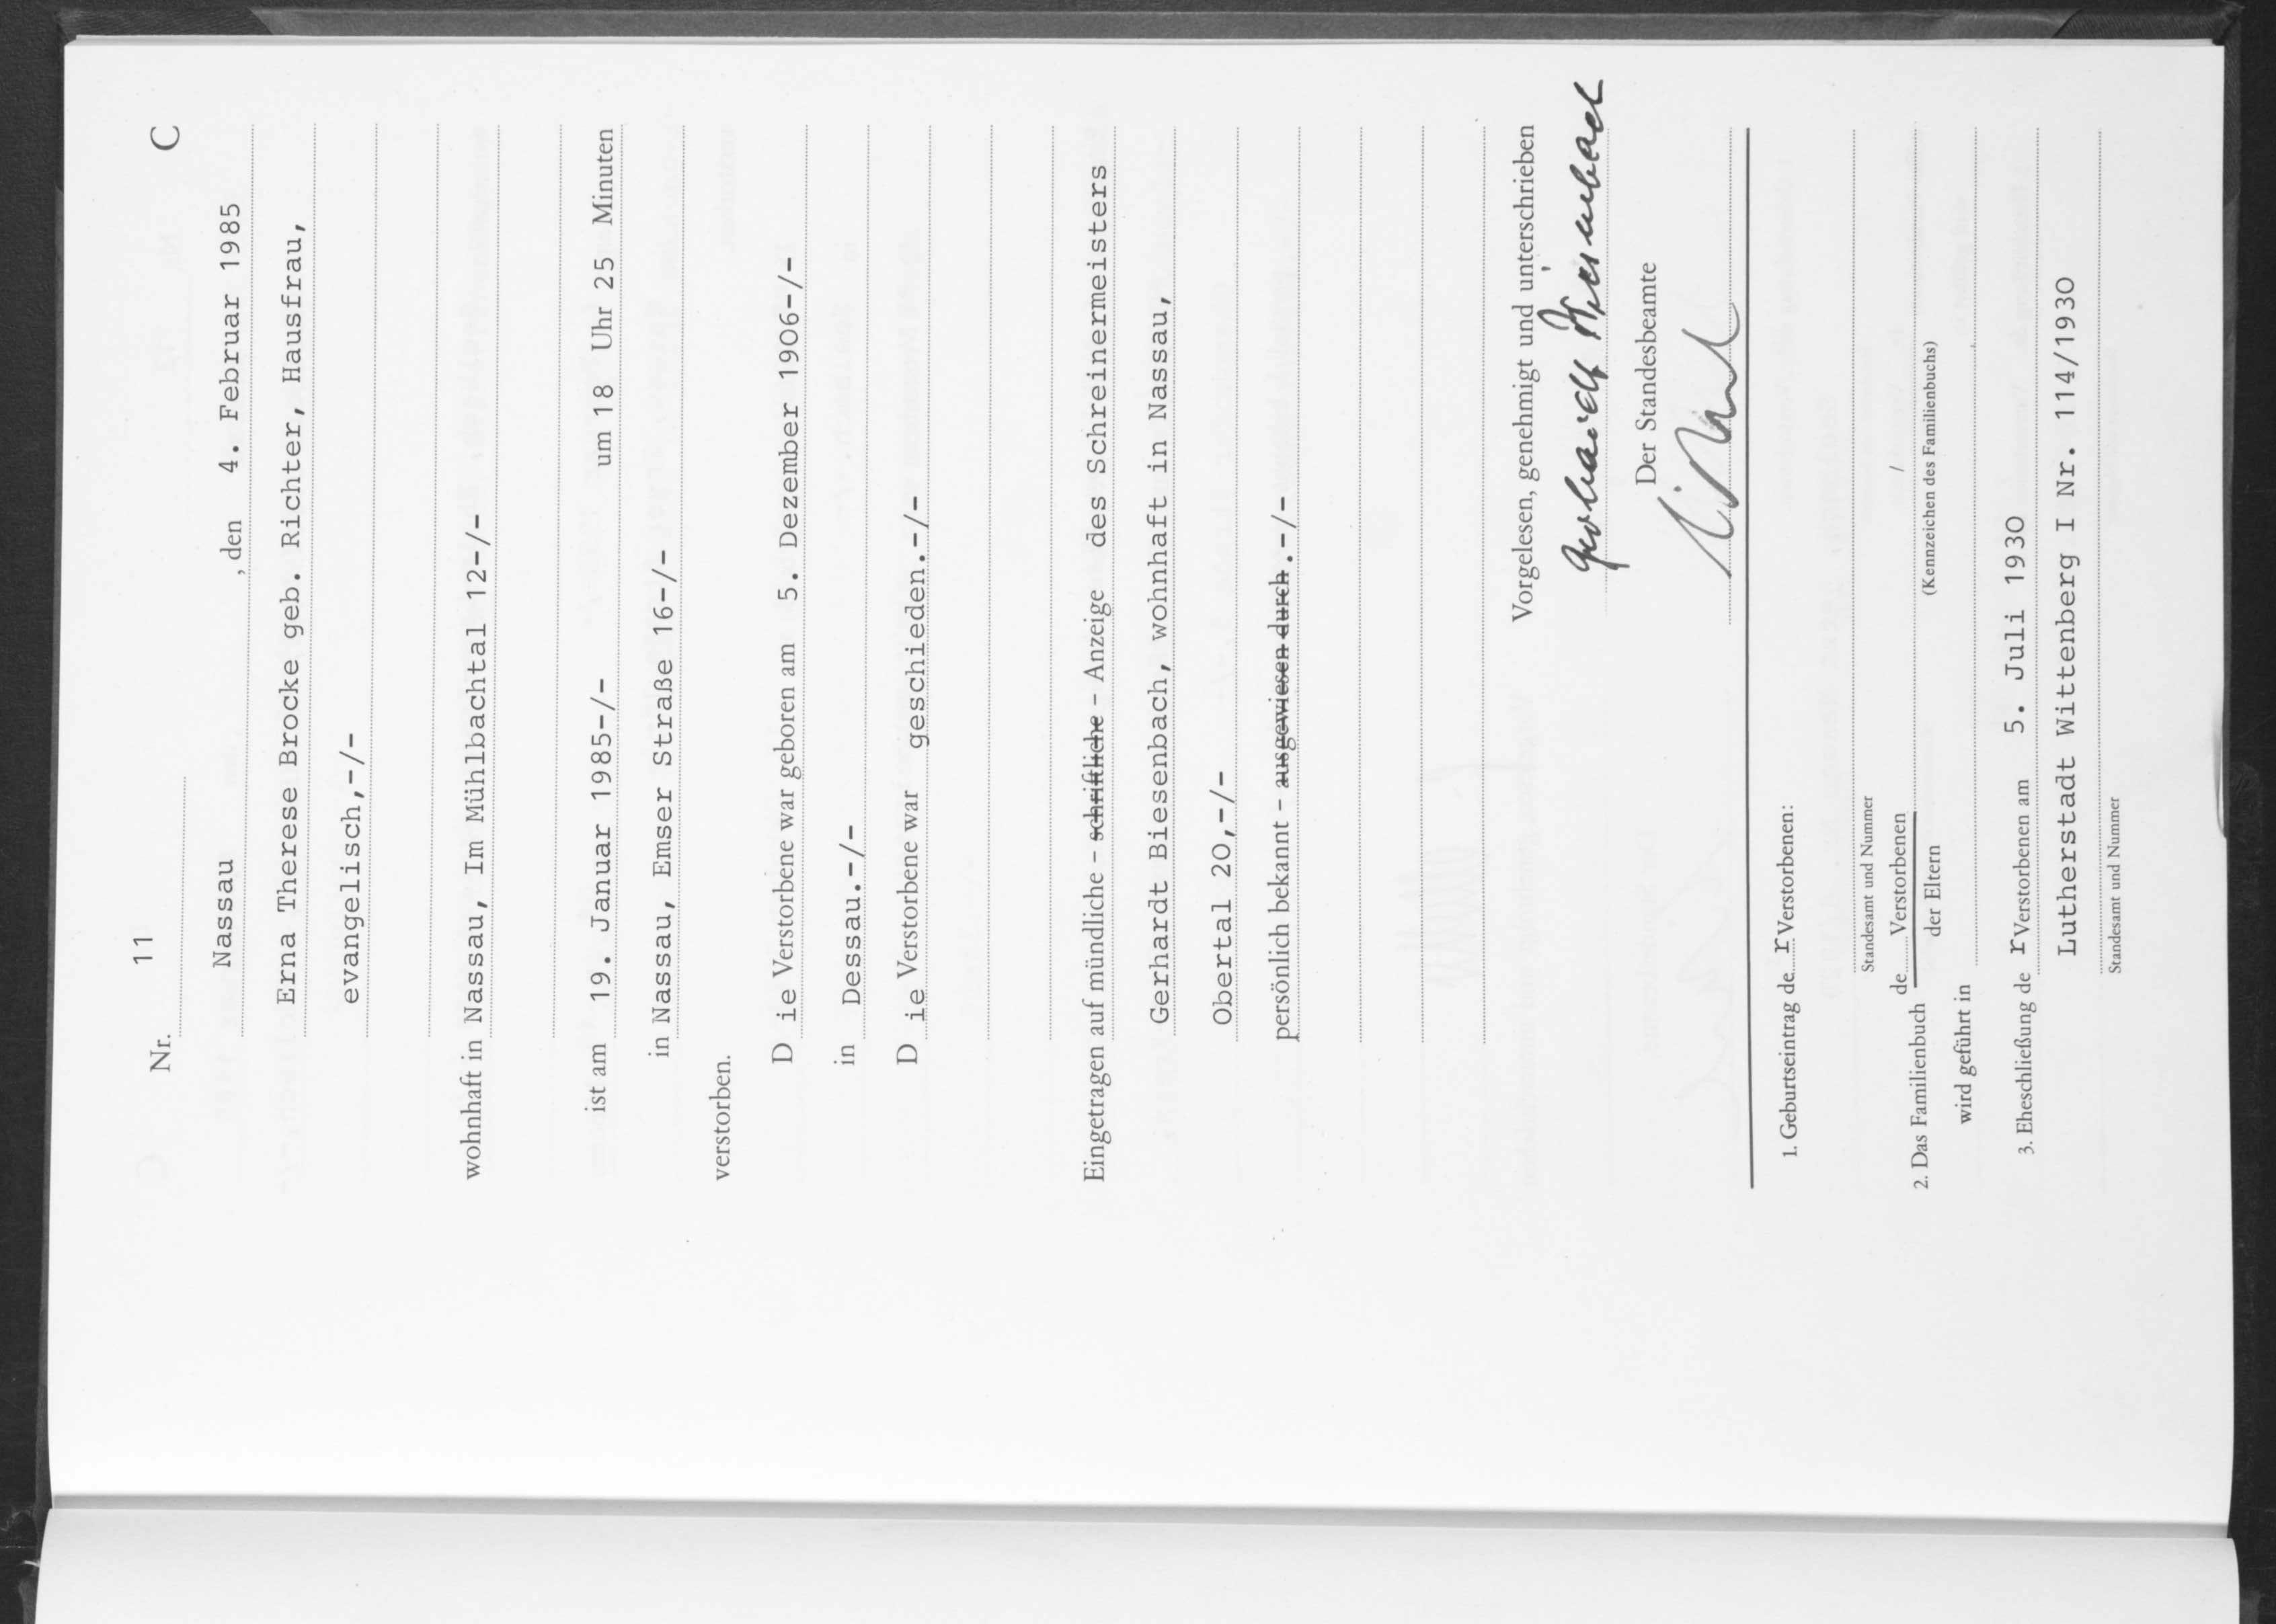 Nr. 11 C
Nassau , den 4. Februar 1985
Erna Therese Brocke geb. Richter, Hausfrau,
evangelisch,-/-
wohnhaft in Nassau, Im Mühlbachtal 12-/-
ist am 19. Januar 1985-/- um 18 Uhr 25 Minuten
in Nassau, Emser Straße 16-/-
verstorben.
D ie Verstorbene war geboren am 5. Dezember 1906-/-
in Dessau.-/-
D ie Verstorbene war geschieden.-/-
Eingetragen auf mündliche - schriftliche - Anzeige des Schreinermeisters
Gerhardt Biesenbach, wohnhaft in Nassau,
Obertal 20,-/-
persönlich bekannt - ausgewiesen durch .-/-
Vorgelesen, genehmigt und unterschrieben
Gerhardt Biesenbach
Der Standesbeamte
1. Geburtseintrag de r Verstorbenen:
Standesamt und Nummer
2. Das Familienbuch de Verstorbenen /
der Eltern (Kennzeichen des Familienbuchs)
wird geführt in
3. Eheschließung de r Verstorbenen am 5. Juli 1930
Lutherstadt Wittenberg I Nr. 114/1930
Standesamt und Nummer